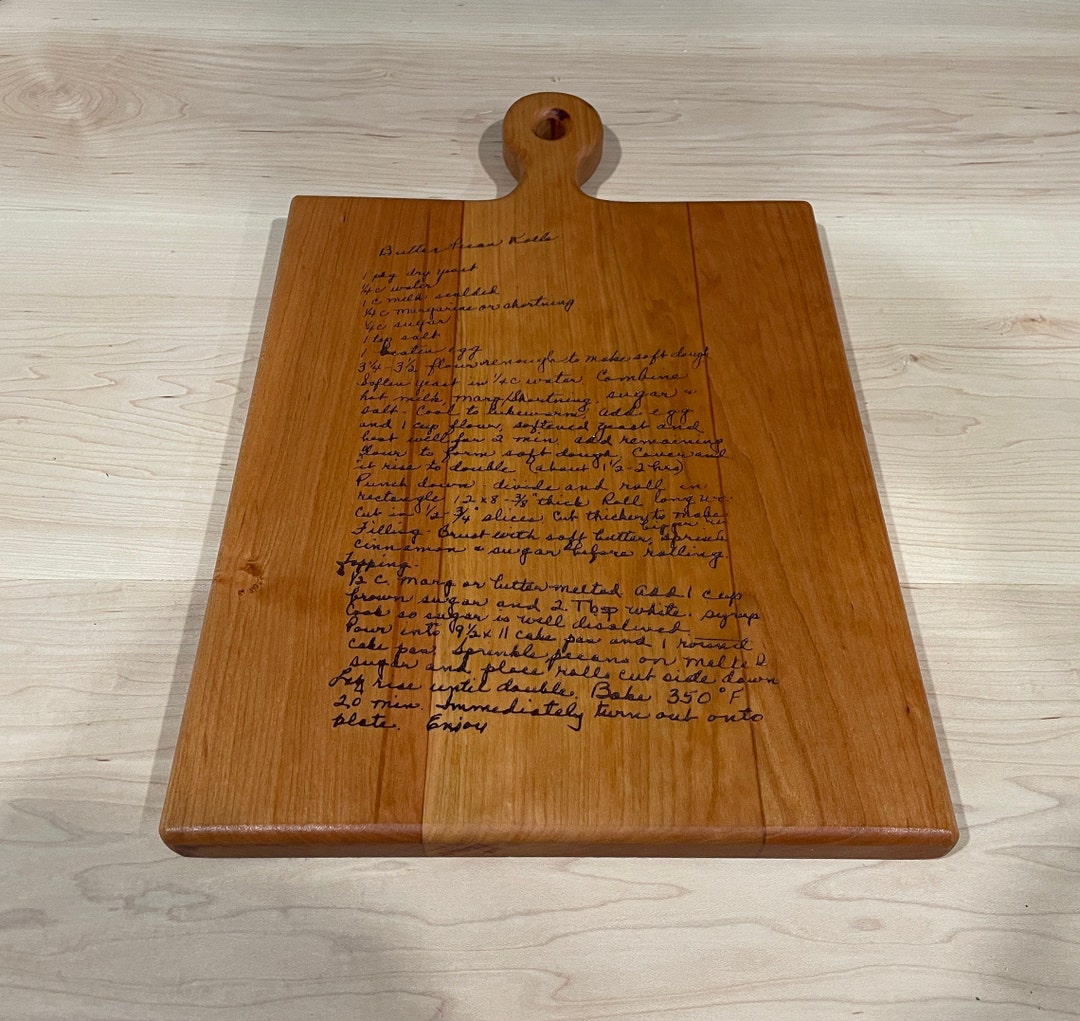 Butter Pecan Rolls
1 pkg dry yeast
¼ c water
1 c milk scalded
¼ c margarine or shortning
¼ c sugar
1 tsp salt
1 beaten egg
3¼ - 3½ flour enough to make soft dough
Soften yeast in ¼ c water. Combine
hot milk, marg/shortning, sugar &
salt - Cool to lukewarm, add egg
and 1 cup flour, softened yeast and
beat well for 2 min. add remaining
flour to form soft dough. Cover and
it rise to double (about 1½-2 hrs)
Punch down - divide and roll in
rectangle 12 x 8 - ⅜" thick Roll long
Cut in ½ - ¾" slices Cut thicker to make
bigger
Filling - Brust with soft butter, sprinkle
cinnamon & sugar before rolling.
Topping -
½ c. marg or butter melted Add 1 cup
brown sugar and 2 Tbsp white syrup
Cook so sugar is well disolved
Pour into 9½ x 11 cake pan and 1 round
cake pan. Sprinkle pecans on melted
sugar and place rolls cut side down
Let rise until double. Bake 350°F
20 min. Immediately turn out onto
plate. Enjoy